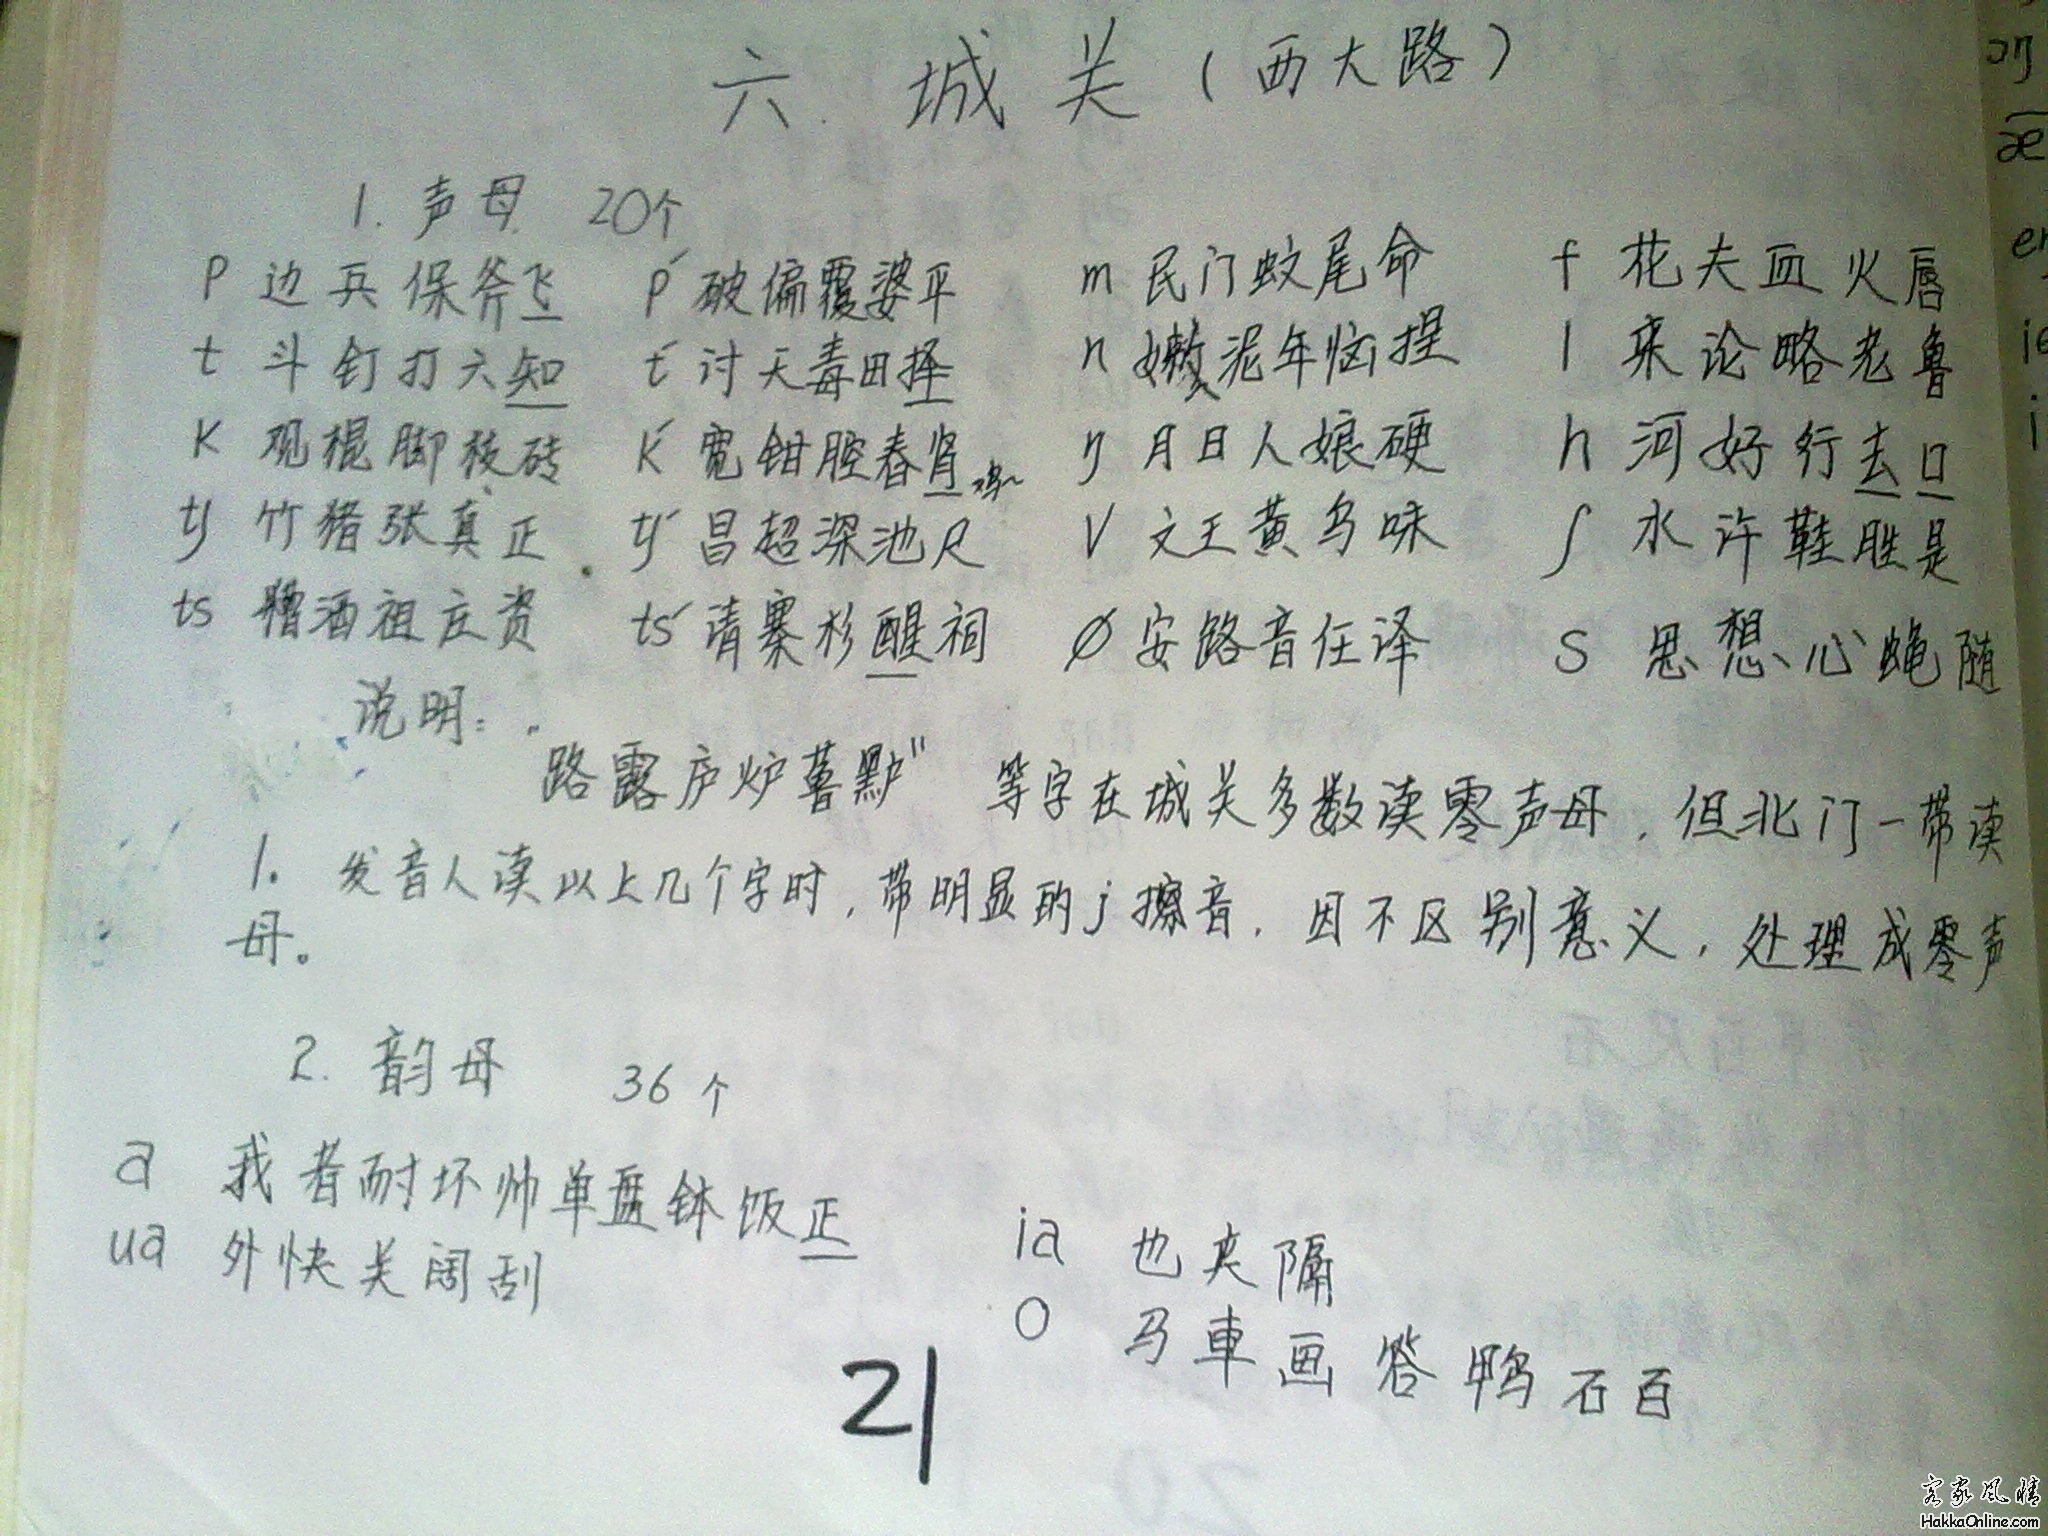 六. 城关（西大路）
1. 声母 20个
p 边兵保斧飞 p´ 破偏覆婆平 m 民门蚊尾命 f 花夫血火唇
t 斗钉打六知 t´ 讨天毒田择 n 嫩泥年恼捏 l 来论略老鲁
k 观棍脚枝砖 k´ 宽钳腔春肾 ŋ 月日人娘硬 h 河好行去口
tʃ 竹猪张真正 tʃ´ 昌超深池尺 V 文王黄乌味 ʃ 水许鞋胜是
ts 糟酒祖庄资 ts´ 请寨杉醒祠 ø 安路音任译 S 思想心蝇随
说明：
路露庐炉薯" 等字在城关多数读零声母，但北门一带读
1. 发音人读以上几个字时，带明显的j擦音，因不区别意义，处理成零声
母。
2. 韵母 36个
a 我者耐坏帅单盘钵饭正
ia 也夹隔
ua 外快关阔刮
o 马車画答鸭石百
21
客家风情
HakkaOnline.com
ɔŋ
æ
i